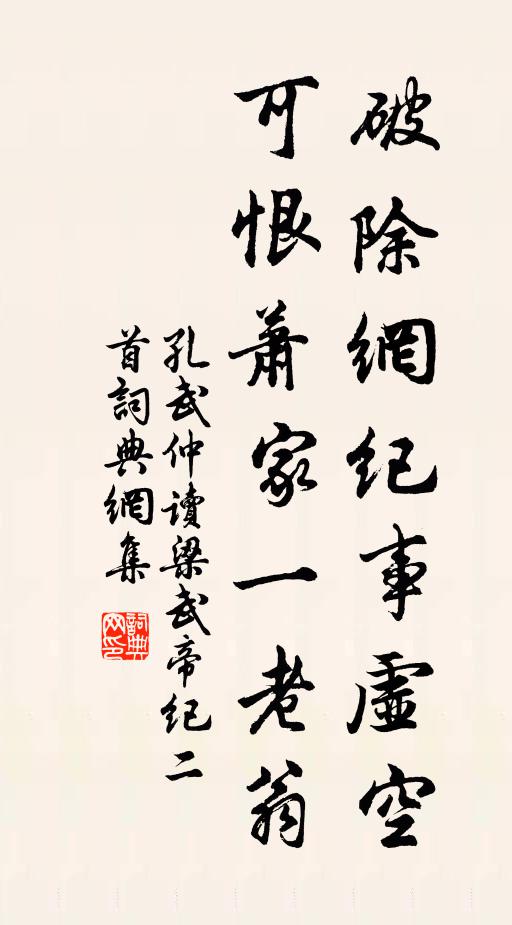 破除網紀事虛空
可恨蕭家一老翁
孔武仲讀梁武帝紀二
首詞典網集
詞典网印